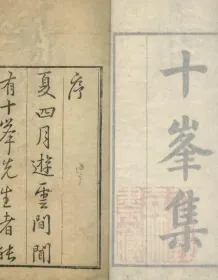 十峯集
序
夏四月遊雲間聞
有十峯先生者能